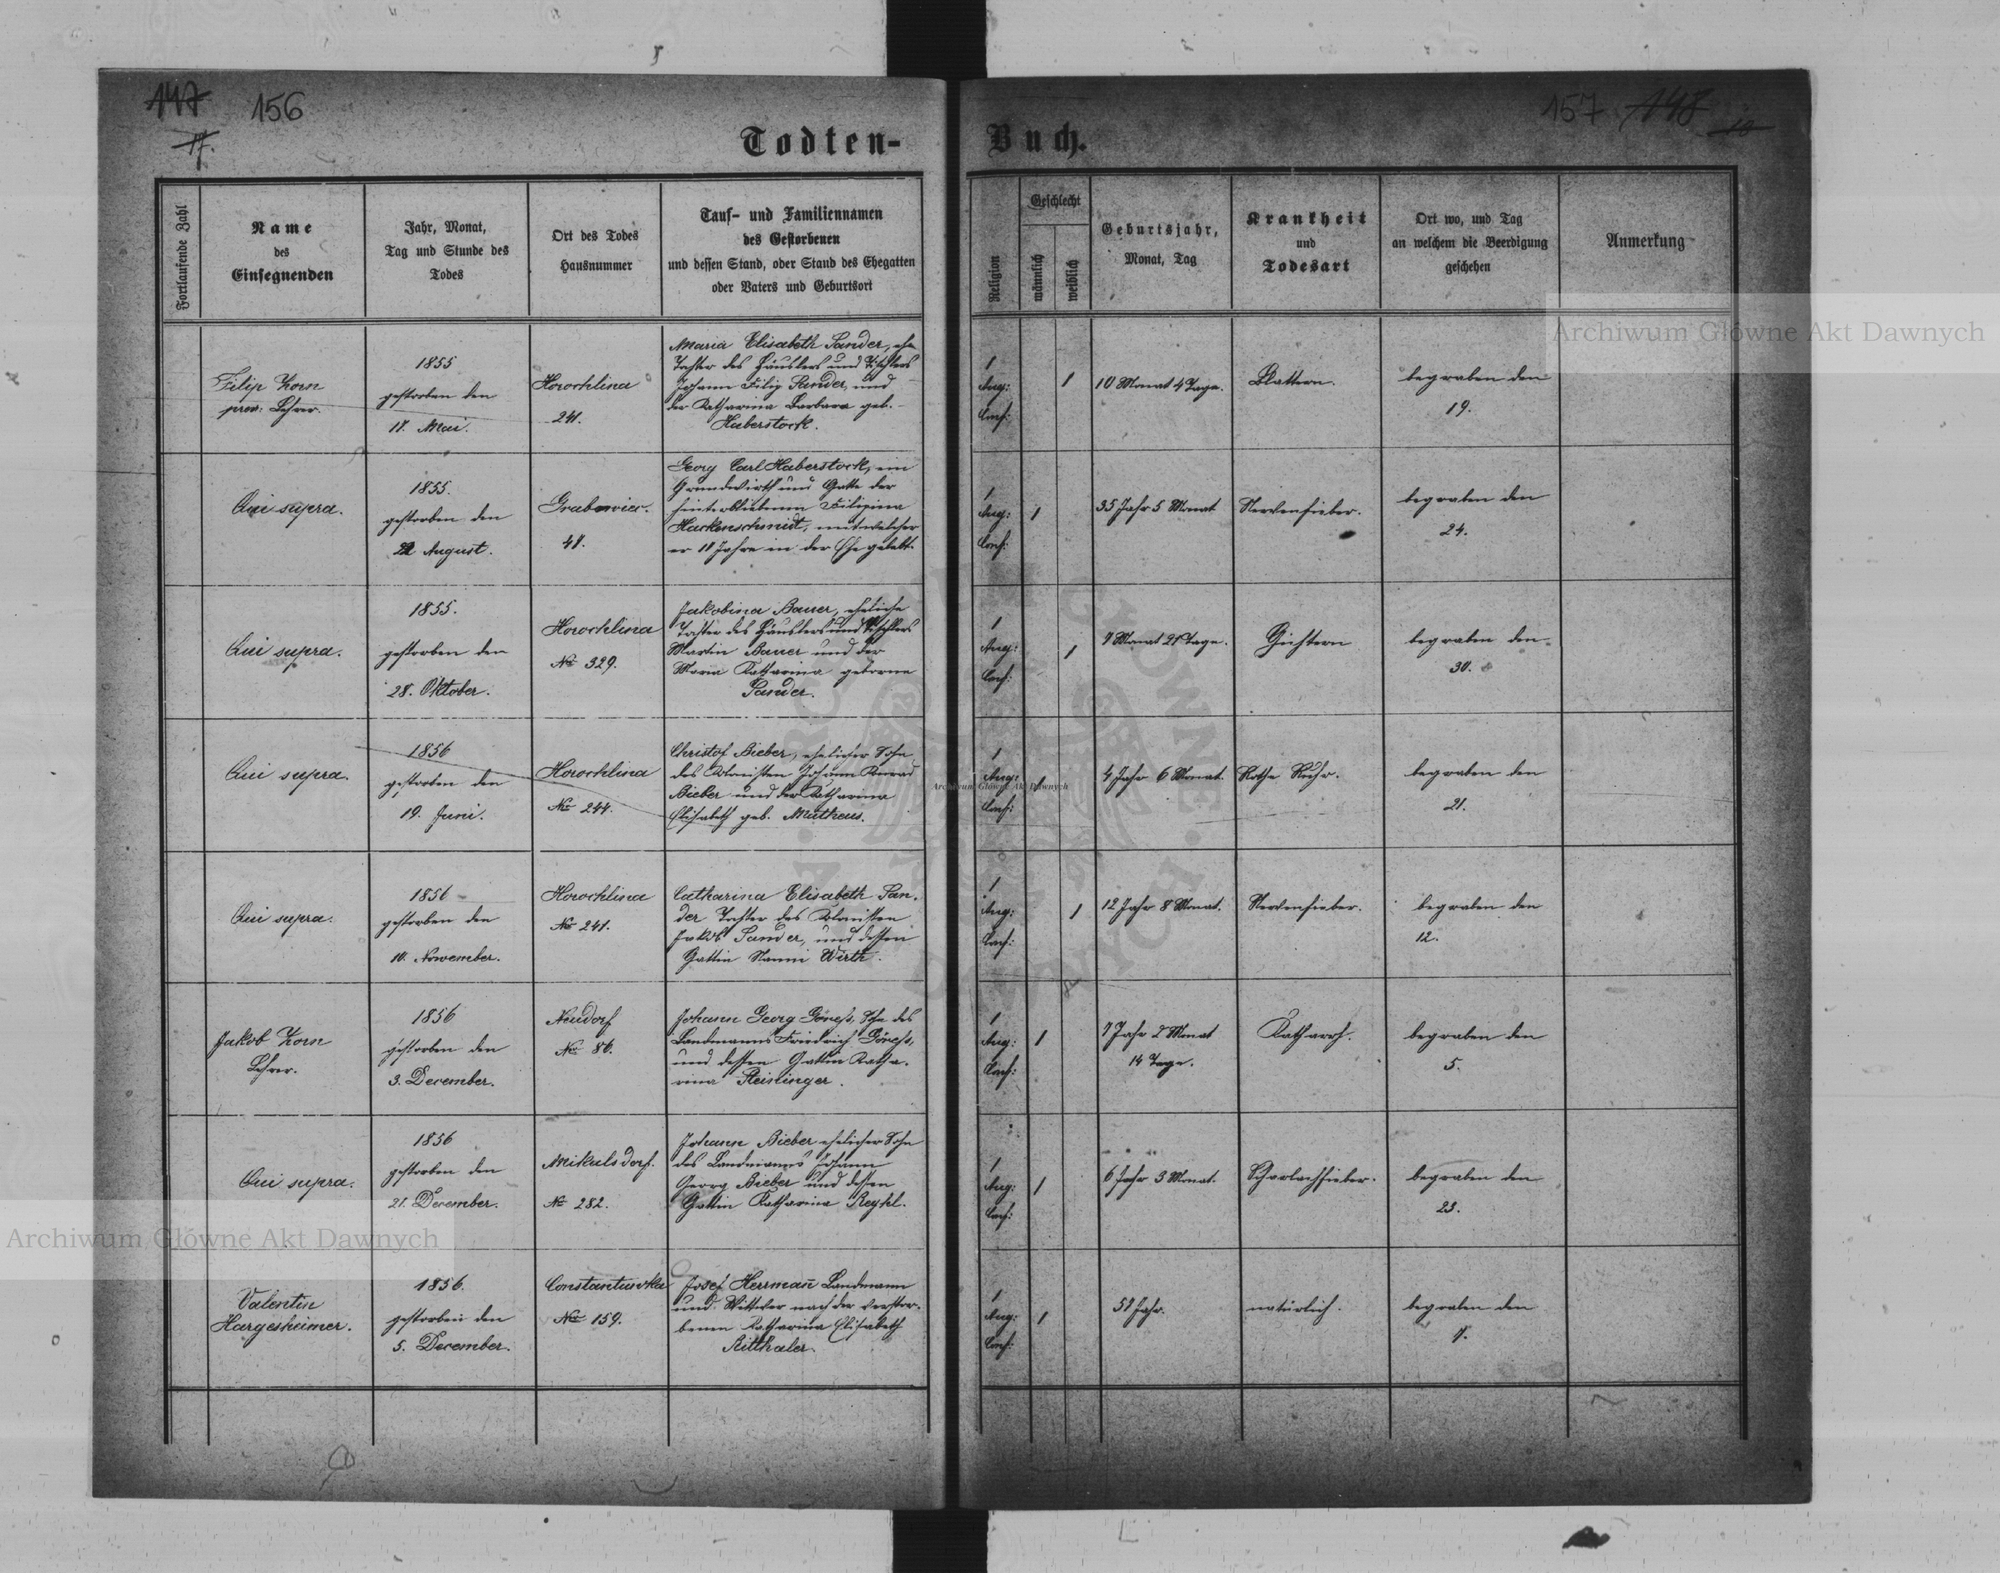 147 156
17.
Todten-
Fortlaufende Zahl
Name
des
Einsegnenden
Jahr, Monat,
Tag und Stunde des
Todes
Ort des Todes
Hausnummer
Tauf- und Familiennamen
des Gestorbenen
und dessen Stand, oder Stand des Ehegatten
oder Vaters und Geburtsort
Filip Korn
prov: Lehrer.
1855
gestorben den
17. Mai.
Horochlina
241.
Maria Elisabeth Sander, ehe
Tochter des Häuslers und Tischlers
Johann Filip Sander, und
der Katharina Barbara geb.
Haberstock.
Qui supra.
1855.
gestorben den
22 August.
Grabowiec.
47.
Georg Carl Haberstock, ein
Grundwirth und Gatte der
hinterbliebenen Filipina
Harkenschmidt, mit welcher
er 11 Jahre in der Ehe gelebt.
Qui supra.
1855.
gestorben den
28. Oktober.
Horochlina
No 329.
Jakobina Bauer, eheliche
Tochter des Häuslers und Tischlers
Martin Bauer und der
Maria Katharina geborne
Sander.
Qui supra.
1856
gestorben den
19. Juni.
Horochlina
No 244.
Christof Bieber, ehelicher Sohn
des Kolonisten Johann Konrad
Bieber und der Katharina
Elisabeth geb. Mutheus.
Qui supra.
1856
gestorben den
10. November.
Horochlina
No 241.
Catharina Elisabeth San-
der Tochter des Kolonisten
Jakob Sander, und dessen
Gattin Nanni Wirth.
Jakob Korn
Lehrer.
1856
gestorben den
3. December.
Neudorf
No 86.
Johann Georg Göres, Sohn des
Landmanns Friedrich Göres,
und dessen Gattin Katha-
rina Steislinger.
Qui supra.
1856
gestorben den
21. December.
Mikulsdorf.
No 282.
Johann Bieber ehelicher Sohn
des Landmanns Johann
Georg Bieber und dessen
Gattin Katharina Reykl.
Valentin
Hargesheimer.
1856.
gestorben den
5. December.
Constantuvka
No 159.
Josef Herrman̄ Landmann
und Wittwer nach der verstor-
benen Katharina Elisabeth
Ritthaler.
157 148
18
Buch.
Religion
Geschlecht
männlich
weiblich
Geburtsjahr,
Monat, Tag
Krankheit
und
Todesart
Ort wo, und Tag
an welchem die Beerdigung
geschehen
Anmerkung
1
Aug:
Conf:
1
10 Monat 4 Tage.
Blattern.
begraben den
19.
1
Aug:
Conf:
1
35 Jahr 5 Monat
Nervenfieber.
begraben den
24.
1
Aug:
Conf:
1
7 Monat 21 Tage.
Gichtern
begraben den
30.
1
Aug:
Conf:
1
4 Jahr 6 Monat.
Rothe Ruhr.
begraben den
21.
1
Aug:
Conf:
1
12 Jahr 8 Monat.
Nervenfieber.
begraben den
12.
1
Aug:
Conf:
1
7 Jahr 2 Monat
14 Tage.
Katharrh.
begraben den
5.
1
Aug:
Conf:
1
6 Jahr 3 Monat.
Scharlachfieber.
begraben den
23.
1
Aug:
Conf:
1
52 Jahr.
natürlich.
begraben den
7.
Archiwum Główne Akt Dawnych
Archiwum Główne Akt Dawnych
Archiwum Główne Akt Dawnych